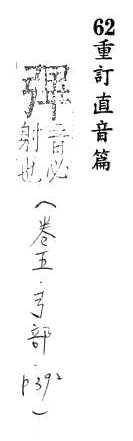 62重訂直音篇
彃音必
射也
(卷五.弓部.p392)